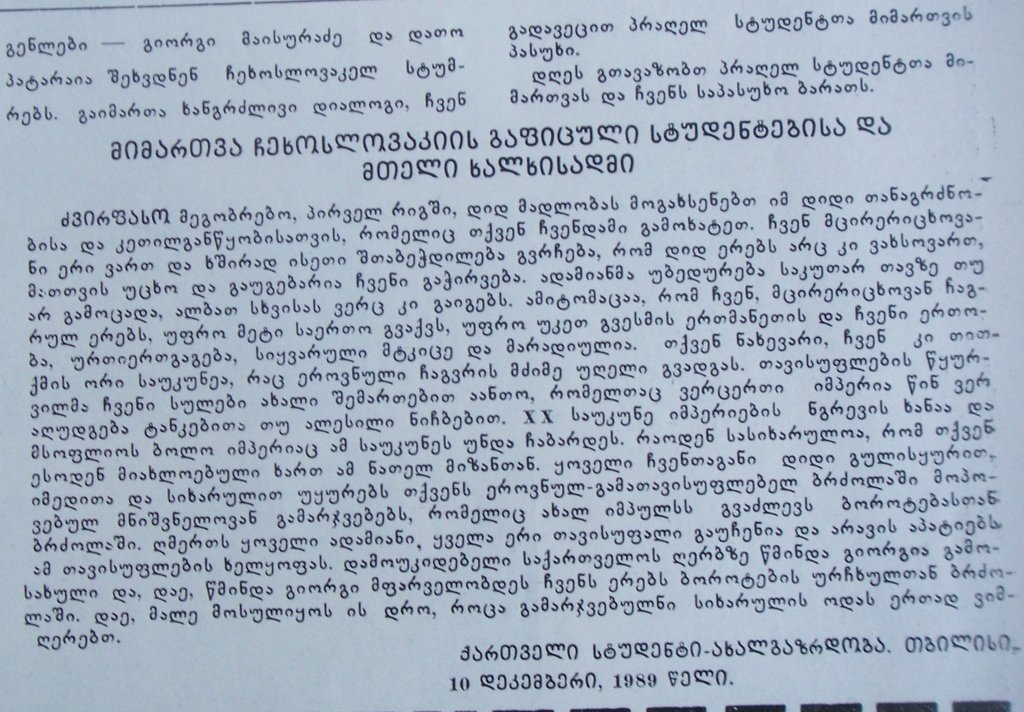 გენლები — გიორგი მაისურაძე და დათო
პატარაია შეხვდნენ ჩეხოსლოვაკელ სტუმ-
რებს. გაიმართა ხანგრძლივი დიალოგი, ჩვენ
გადავეცით პრაღელ სტუდენტთა მიმართვის
პასუხი.
დღეს გთავაზობთ პრაღელ სტუდენტთა მი-
მართვას და ჩვენს საპასუხო ბარათს.
მიმართვა ჩეხოსლოვაკიის გაფიცული სტუდენტებისა და
მთელი ხალხისადმი
ძვირფასო მეგობრებო, პირველ რიგში, დიდ მადლობას მოგახსენებთ იმ დიდი თანაგრძნო-
ბისა და კეთილგანწყობისათვის, რომელიც თქვენ ჩვენდამი გამოხატეთ. ჩვენ მცირერიცხოვა-
ნი ერი ვართ და ხშირად ისეთი შთაბეჭდილება გვრჩება, რომ დიდ ერებს არც კი ვახსოვართ,
მათთვის უცხო და გაუგებარია ჩვენი გაჭირვება. ადამიანმა უბედურება საკუთარ თავზე თუ
არ გამოცადა, ალბათ სხვისას ვერც კი გაიგებს. ამიტომაცაა, რომ ჩვენ, მცირერიცხოვან ჩაგ-
რულ ერებს, უფრო მეტი საერთო გვაქვს, უფრო უკეთ გვესმის ერთმანეთის და ჩვენი ერთო-
ბა, ურთიერთგაგება, სიყვარული მტკიცე და მარადიულია. თქვენ ნახევარი, ჩვენ კი თით-
ქმის ორი საუკუნეა, რაც ეროვნული ჩაგვრის მძიმე უღელი გვადგას. თავისუფლების წყურ-
ვილმა ჩვენი სულები ახალი შემართებით აანთო, რომელთაც ვერცერთი იმპერია წინ ვერ
აღუდგება ტანკებითა თუ ალესილი ნიჩბებით. XX საუკუნე იმპერიების ნგრევის ხანაა და
მსოფლიოს ბოლო იმპერიაც ამ საუკუნეს უნდა ჩაბარდეს. რაოდენ სასიხარულოა, რომ თქვენ
ესოდენ მიახლოებული ხართ ამ ნათელ მიზანთან. ყოველი ჩვენთაგანი დიდი გულისყურით,
იმედითა და სიხარულით უყურებს თქვენს ეროვნულ-გამათავისუფლებელ ბრძოლაში მოპო-
ვებულ მნიშვნელოვან გამარჯვებებს, რომელიც ახალ იმპულსს გვაძლევს ბოროტებასთან
ბრძოლაში. ღმერთს ყოველი ადამიანი, ყველა ერი თავისუფალი გაუჩენია და არავის აპატიებს
ამ თავისუფლების ხელყოფას. დამოუკიდებელი საქართველოს ღერბზე წმინდა გიორგია გამო-
სახული და, დაე, წმინდა გიორგი მფარველობდეს ჩვენს ერებს ბოროტების ურჩხულთან ბრძო-
ლაში. დაე, მალე მოსულიყოს ის დრო, როცა გამარჯვებულნი სიხარულის ოდას ერთად ვიმ-
ღერებთ.
ქართველი სტუდენტი-ახალგაზრდობა. თბილისი,
10 დეკემბერი, 1989 წელი.